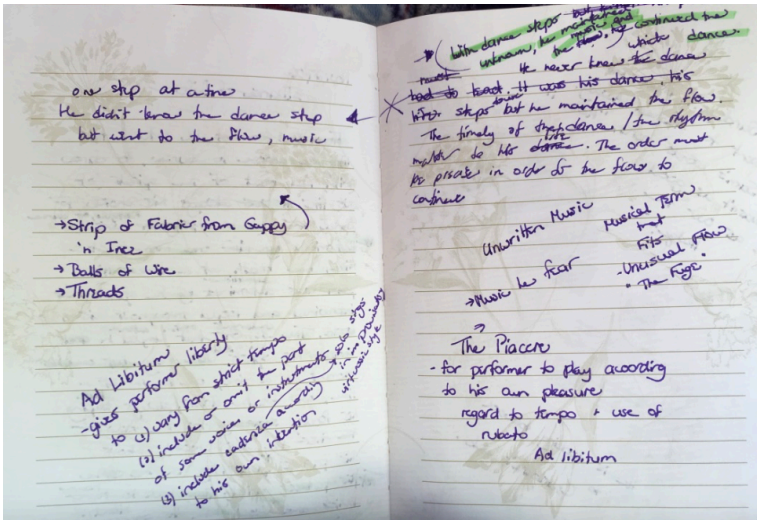 one step at a time
He didn't know the dance step
but went to the flow, music
→ Strip of Fabric from Gappy
'n Inez
→ Balls of wire
→ Threads
Ad Libitum
- gives performer liberty
to (1) vary from strict tempo
(2) include or omit the part
of some voice or instruments
(3) include cadenza according
to his own intention
→ solo stops
in improvisatory
virtuosic style
With dance steps
unknown, he maintained
the music and
flow, he continued the
which dance.
must He never knew the dance
had to lead. It was his dance, his
steps but he maintained the flow.
The timely of the dance / the rhythm
matter to his dance. life The order must
be precise in order for the flow to
continue
Unwritten Music
Musical Term
that
Fits
- Unusual Flow
• The Fuge.
→ Music le fear
→
The Piacere
- for performer to play according
to his own pleasure
regard to tempo + use of
rubato
Ad libitum